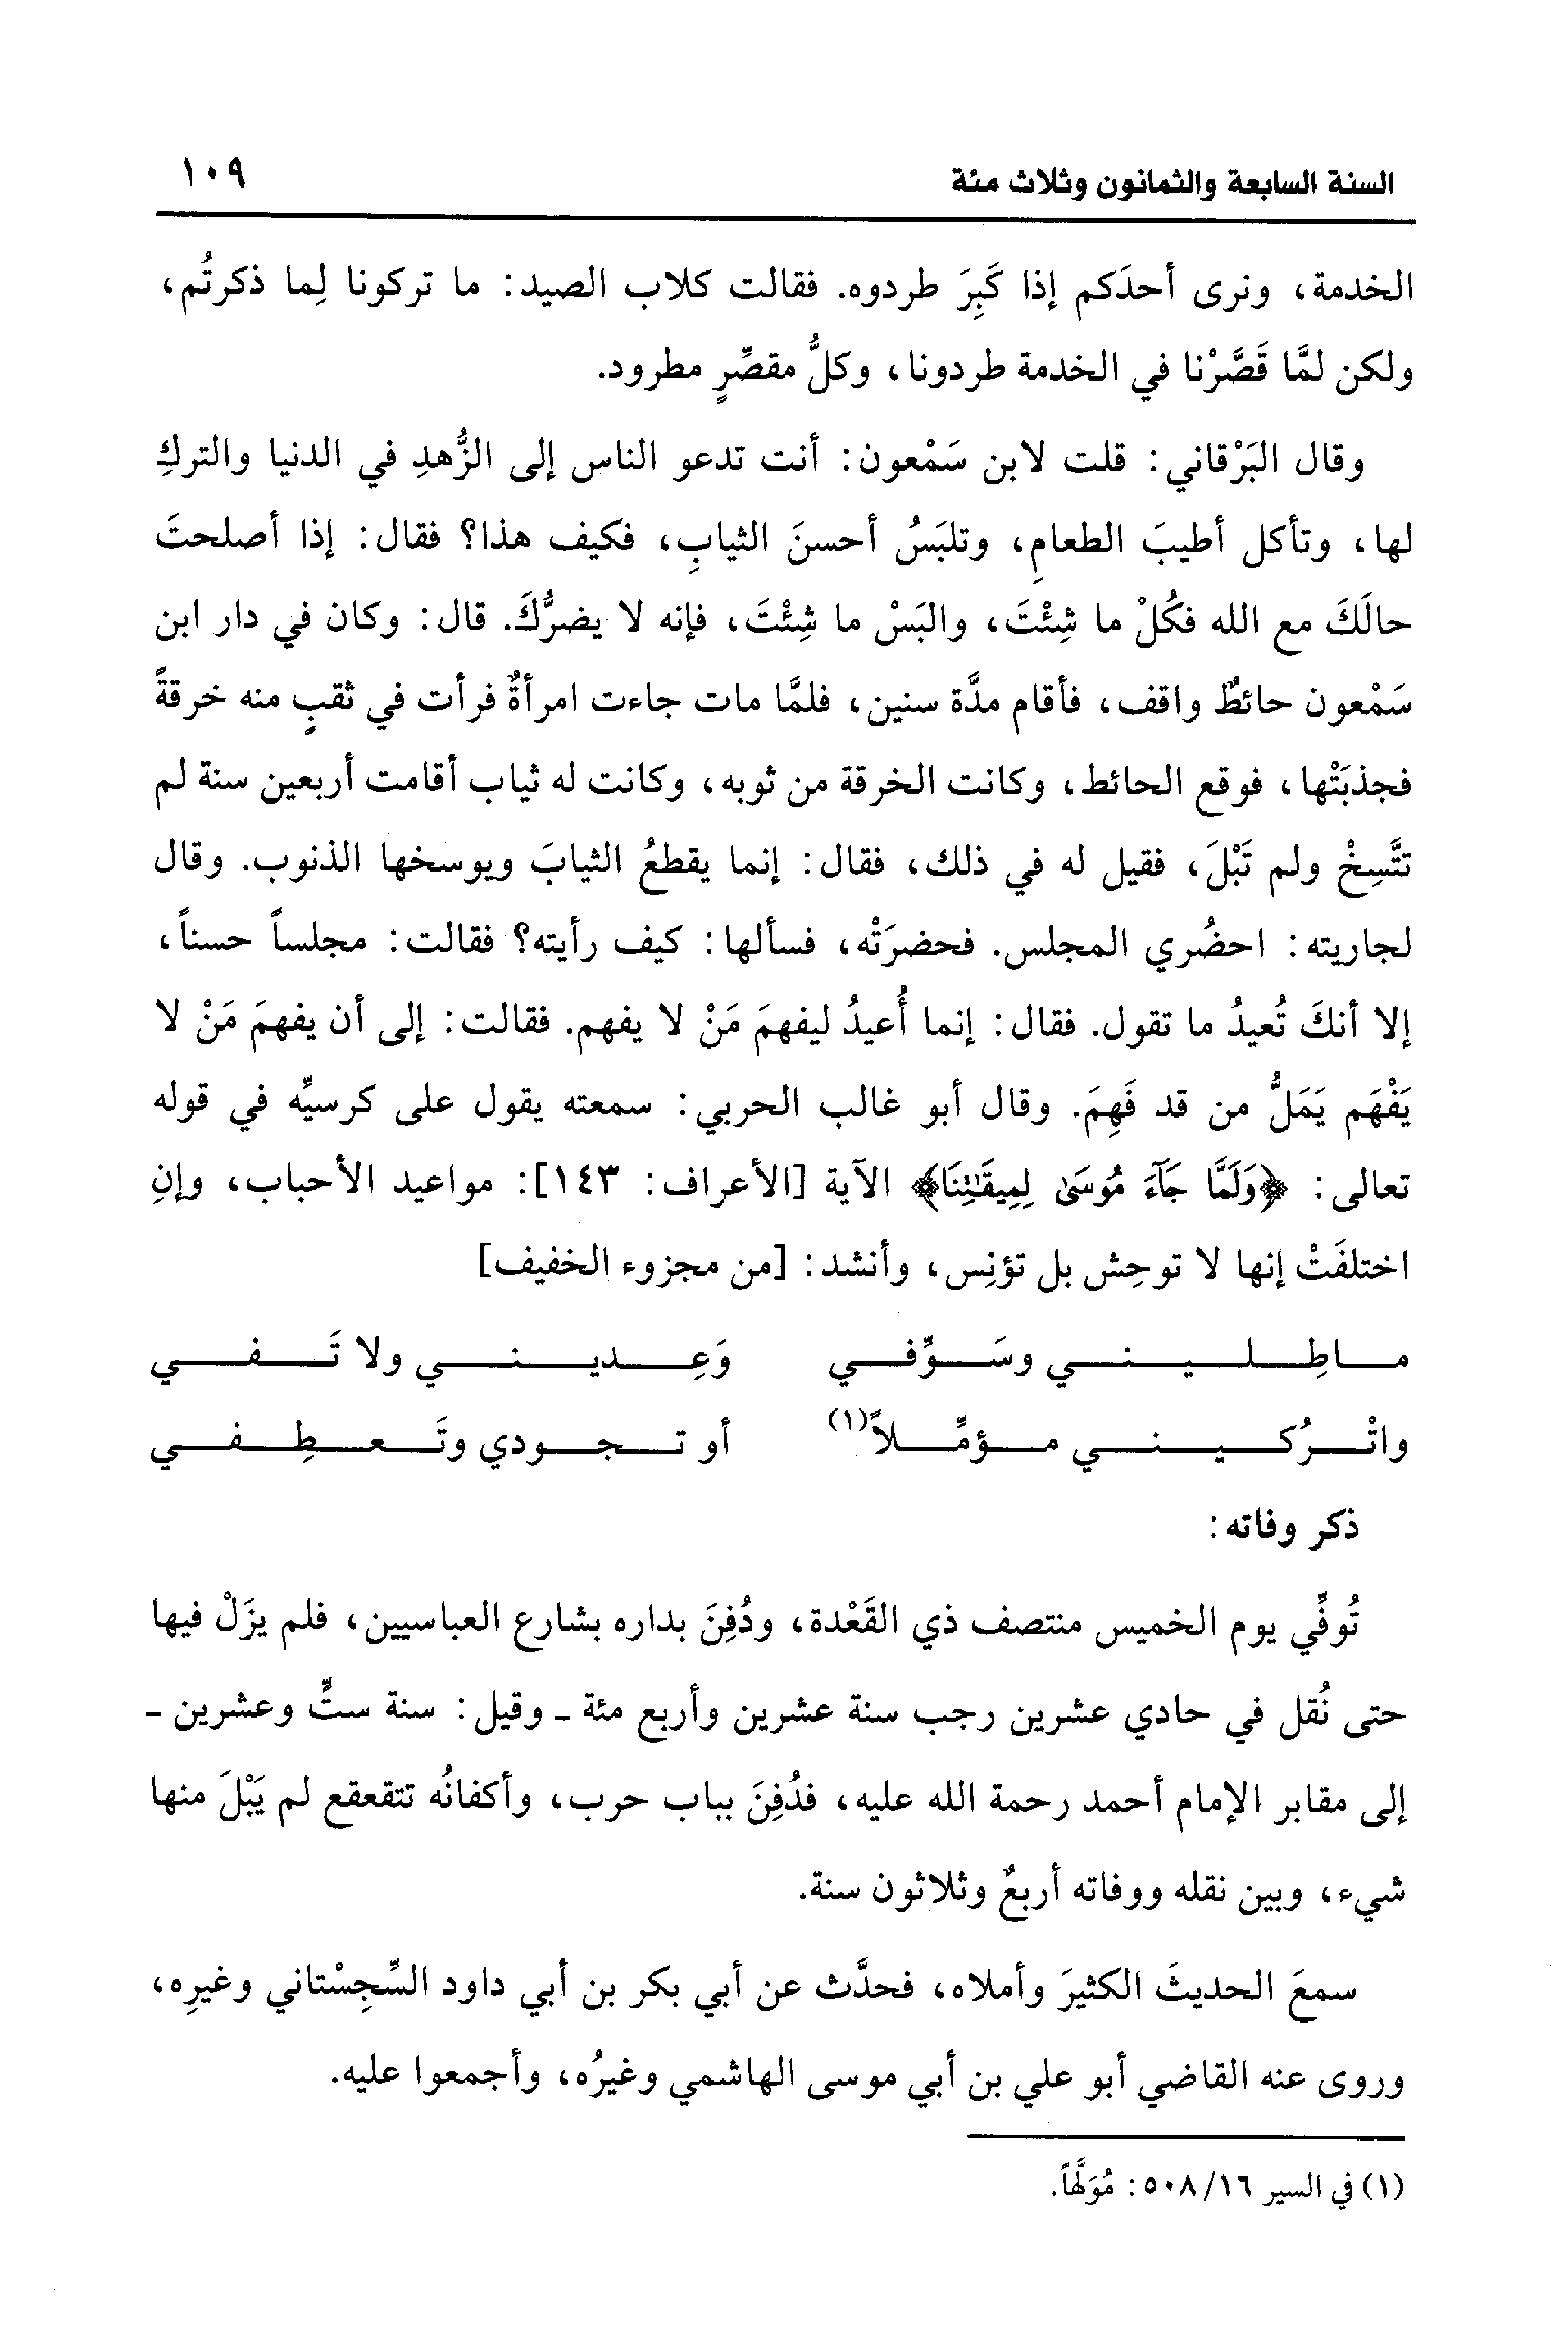 السنة السابعة والثمانون وثلاث مئة ١٠٩
الخدمة، ونرى أحدَكم إذا كَبِرَ طردوه. فقالت كلاب الصيد: ما تركونا لِما ذكرتُم،
ولكن لمَّا قَصَّرْنا في الخدمة طردونا، وكلُّ مقصِّرٍ مطرود.
وقال البَرْقاني: قلت لابن سَمْعون: أنت تدعو الناس إلى الزُّهدِ في الدنيا والتركِ
لها، وتأكل أطيبَ الطعامِ، وتلبَسُ أحسنَ الثيابِ، فكيف هذا؟ فقال: إذا أصلحتَ
حالَكَ مع الله فكُلْ ما شِئْتَ، والبَسْ ما شِئْتَ، فإنه لا يضرُّكَ. قال: وكان في دار ابن
سَمْعون حائطٌ واقف، فأقام مدَّة سنين، فلمَّا مات جاءت امرأةٌ فرأت في ثقبٍ منه خرقةً
فجذبَتْها، فوقع الحائط، وكانت الخرقة من ثوبه، وكانت له ثياب أقامت أربعين سنة لم
تتَّسِخْ ولم تَبْلَ، فقيل له في ذلك، فقال: إنما يقطعُ الثيابَ ويوسخها الذنوب. وقال
لجاريته: احضُري المجلس. فحضرَتْه، فسألها: كيف رأيته؟ فقالت: مجلساً حسناً،
إلا أنكَ تُعيدُ ما تقول. فقال: إنما أُعيدُ ليفهمَ مَنْ لا يفهم. فقالت: إلى أن يفهمَ مَنْ لا
يَفْهَم يَمَلُّ من قد فَهِمَ. وقال أبو غالب الحربي: سمعته يقول على كرسيِّه في قوله
تعالى: ﴿وَلَمَّا جَآءَ مُوسَىٰ لِمِيقَٰتِنَا﴾ الآية [الأعراف: ١٤٣]: مواعيد الأحباب، وإنِ
اختلفَتْ إنها لا توحِش بل تؤنِس، وأنشد: [من مجزوء الخفيف]
مـاطِـلـيـنـي وسَـوِّفـي وَعِـديـنـي ولا تَـفـي
واتْـرُكـيـنـي مـؤمِّـلاً(١) أو تـجـودي وتَـعـطِـفـي
ذكر وفاته:
تُوفِّي يوم الخميس منتصف ذي القَعْدة، ودُفِنَ بداره بشارع العباسيين، فلم يزَلْ فيها
حتى نُقل في حادي عشرين رجب سنة عشرين وأربع مئة ـ وقيل: سنة ستٍّ وعشرين ـ
إلى مقابر الإمام أحمد رحمة الله عليه، فدُفِنَ بباب حرب، وأكفانُه تتقعقع لم يَبْلَ منها
شيء، وبين نقله ووفاته أربعٌ وثلاثون سنة.
سمعَ الحديثَ الكثيرَ وأملاه، فحدَّث عن أبي بكر بن أبي داود السِّجِسْتاني وغيرِه،
وروى عنه القاضي أبو علي بن أبي موسى الهاشمي وغيرُه، وأجمعوا عليه.
(١) في السير ١٦/ ٥٠٨: مُوَلَّهاً.